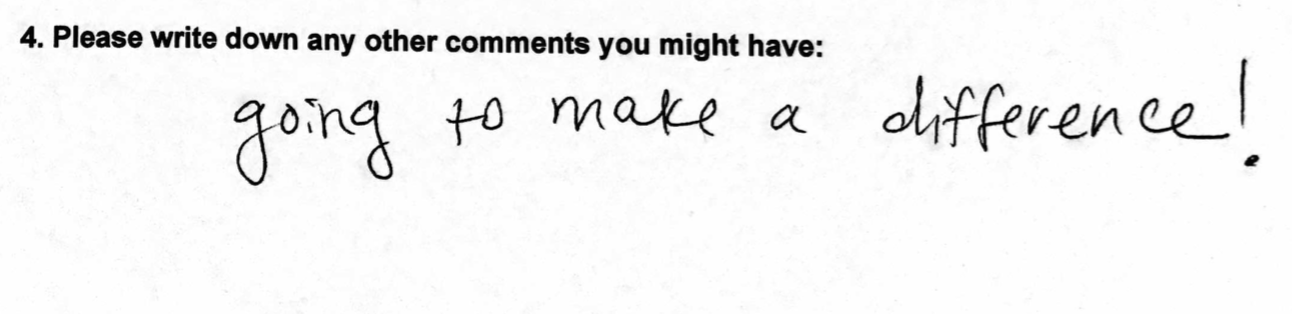 4. Please write down any other comments you might have:
going to make a difference!